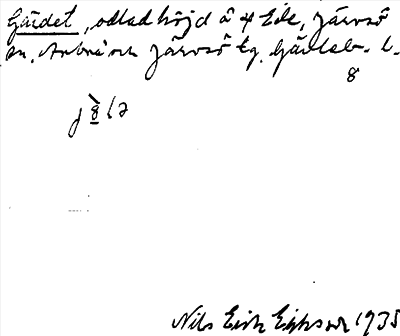 Gärdet, odlad höjd å 4 Ede, Järvsö
sn. Arbrå och Järvsö tg. Gävleb. l.
8
Nils Erik Eriksson 1935